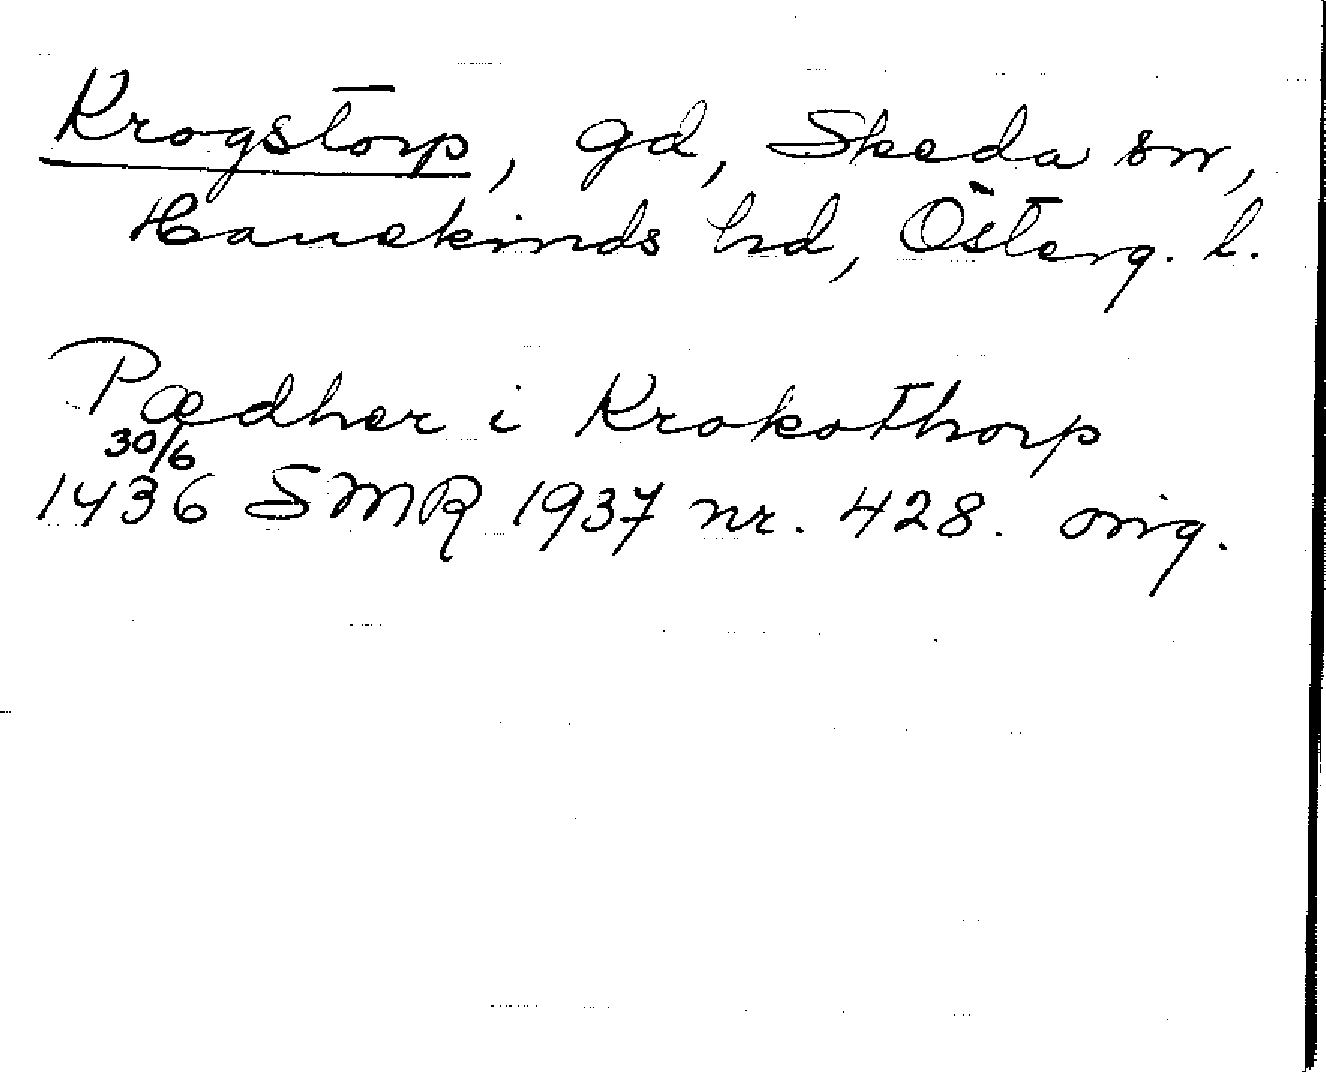 Krogstorp, gd, Skeda sn,
Hanekinds hd, Österg. l.
Pædher i Krokothorp
30/6
1436 SMR 1937 nr. 428. orig.